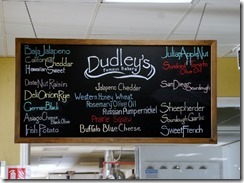 Baja Jalapeno
California Cheddar
Hawaiian Sweet
Date Nut Raisin
Deli Onion Rye
German Black
Asiago Cheese
Irish Potato
Dudley's
Famous Bakery
Jalapeno Cheddar
Western Honey Wheat
Rosemary Olive Oil
Russian Pumpernickel
Prairie
Buffalo Blue Cheese
Julian Apple Nut
Sundried Tomato
Olive Oil
San Diego Sourdough
Sheepherder
Sourdough Garlic
Sweet French